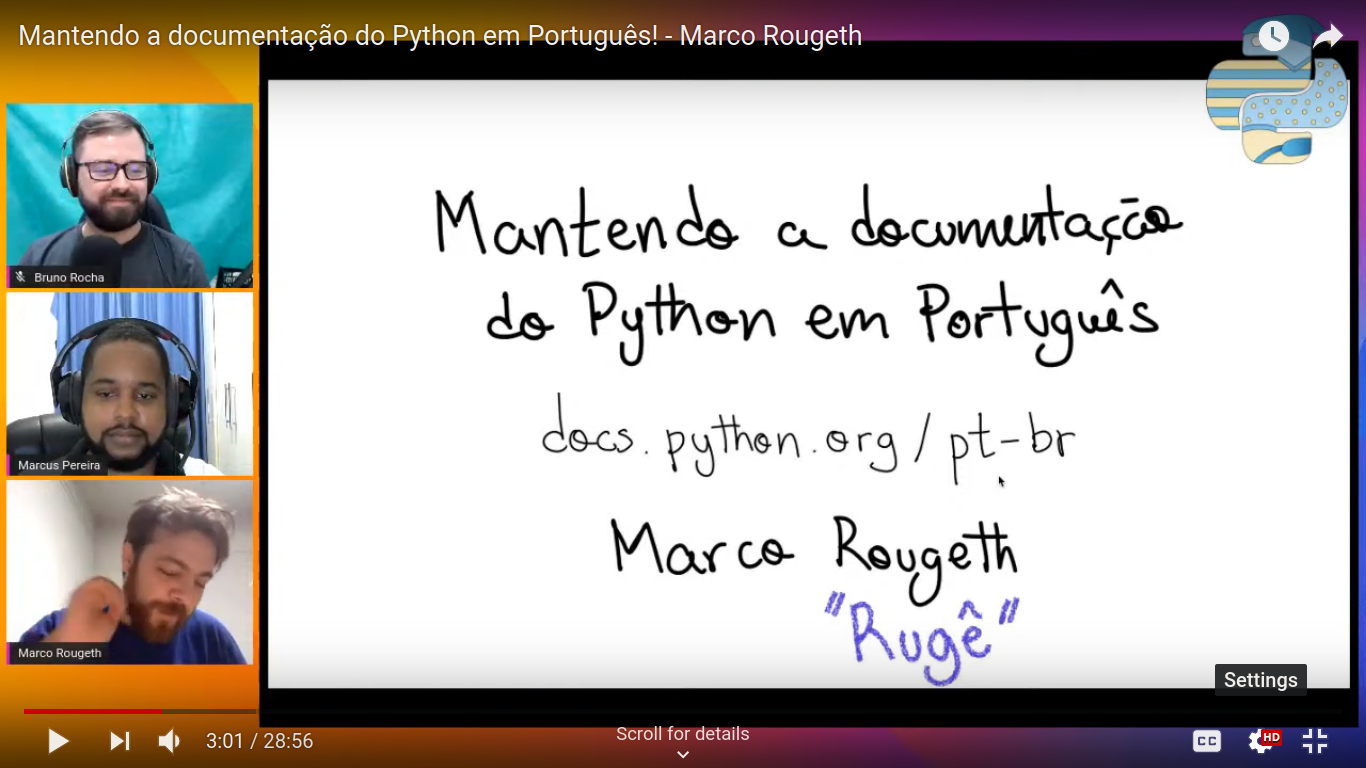 Mantendo a documentação do Python em Português! - Marco Rougeth
Bruno Rocha
Marcus Pereira
Marco Rougeth
Mantendo a documentação
do Python em Português
docs.python.org/pt-br
Marco Rougeth
"Rugê"
Settings
3:01 / 28:56
Scroll for details
CC
HD